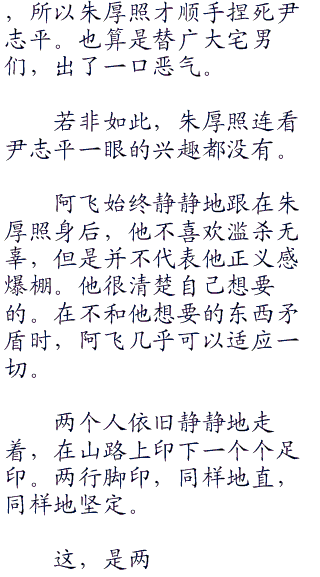 ，所以朱厚照才顺手捏死尹
志平。也算是替广大宅男
们，出了一口恶气。
若非如此，朱厚照连看
尹志平一眼的兴趣都没有。
阿飞始终静静地跟在朱
厚照身后，他不喜欢滥杀无
辜，但是并不代表他正义感
爆棚。他很清楚自己想要
的。在不和他想要的东西矛
盾时，阿飞几乎可以适应一
切。
两个人依旧静静地走
着，在山路上印下一个个足
印。两行脚印，同样地直，
同样地坚定。
这，是两